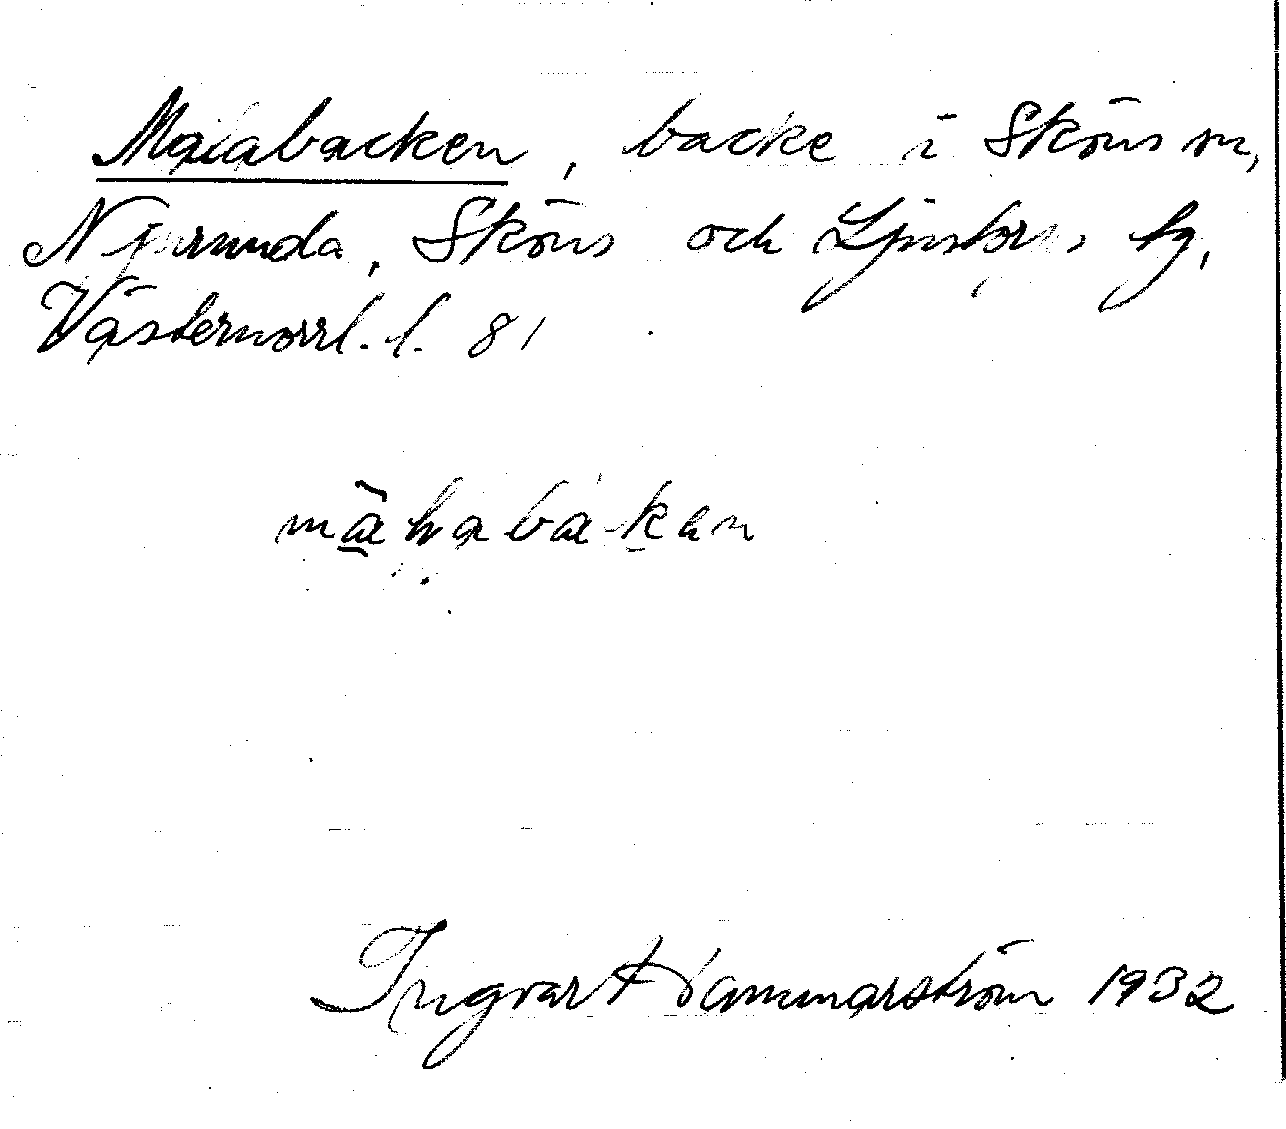 Majabacken, backe i Sköns sn,
Njurunda, Sköns och Ljustorps tg,
Västernorrl. l. 81
Ingvar Hammarström 1932